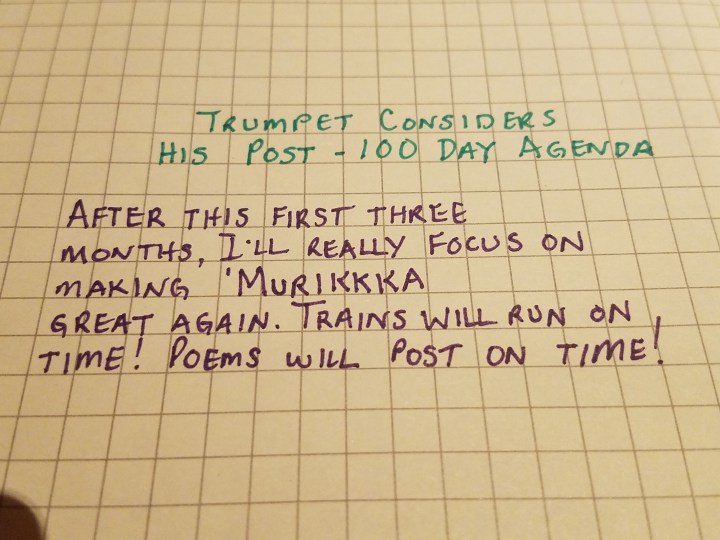 TRUMPET CONSIDERS
HIS POST-100 DAY AGENDA
AFTER THIS FIRST THREE
MONTHS, I'LL REALLY FOCUS ON
MAKING 'MURIKKKA
GREAT AGAIN. TRAINS WILL RUN ON
TIME! POEMS WILL POST ON TIME!